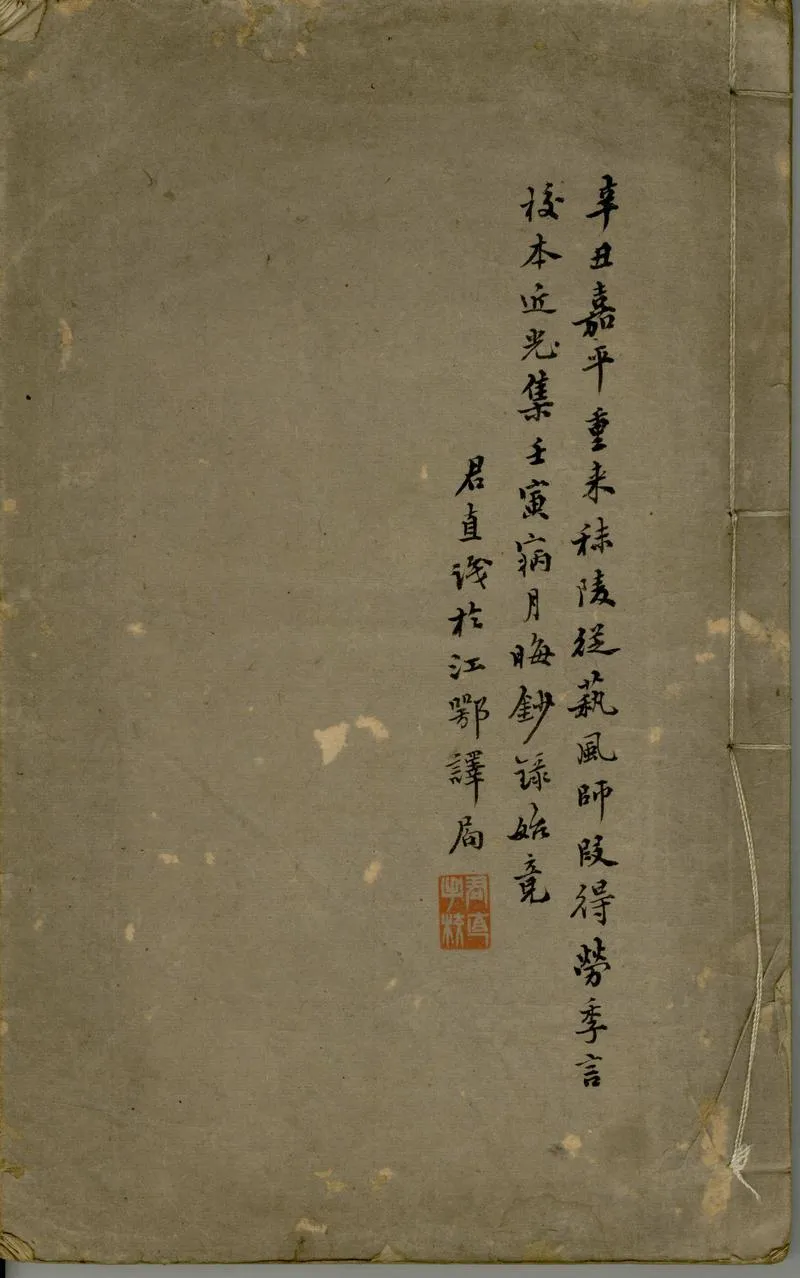 辛丑嘉平重来秣陵從蓺風師叚得勞季言
校本近光集壬寅寎月晦鈔録始竟
君直識於江鄂譯局
君直手校